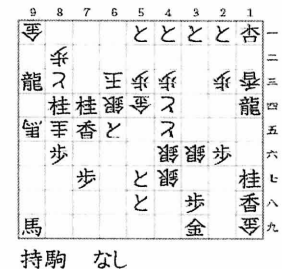 9 8 7 6 5 4 3 2 1
金 と と と と 香 一
歩 二
龍 と 王 歩 歩 歩 香 三
桂 桂 銀 金 と 龍 四
馬 圭 香 と と 五
歩 銀 銀 歩 六
歩 と 銀 桂 七
と 歩 香 八
馬 金 金 九
持駒 なし